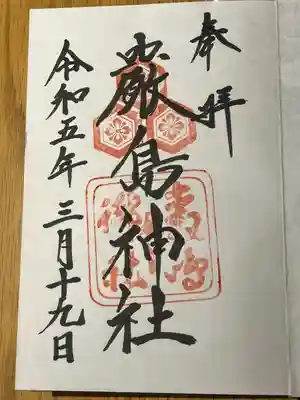 奉拝
嚴島神社
令和五年三月十九日